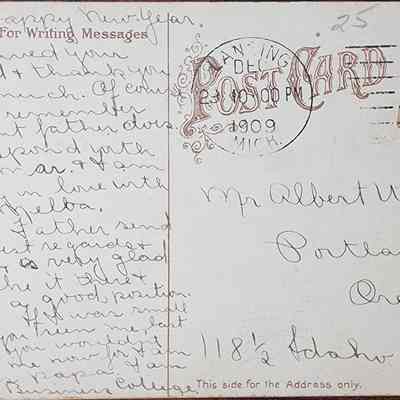 appy New Year
For Writing Messages
your
& thank you
much. Of course
remember
t father does.
ar. & I am
in love with
Melba.
Father send
est regards &
is very glad
like it there &
a good position.
I was small
you seen me last
you wouldn't
me now for I am
papa. I am
Business College
25
POST CARD
LANSING
DEC
23
10 00 PM
1909
MICH.
Mr Albert W
Portla
Ore
118 1/2 Idaho.
This side for the Address only.